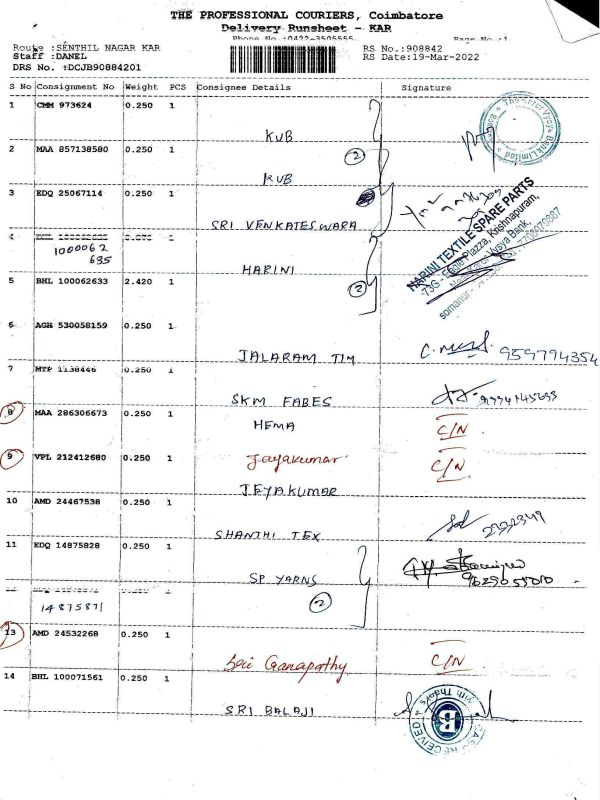 THE PROFESSIONAL COURIERS, Coimbatore
Delivery Runsheet - KAR
Phone No :0422-3505555 Page No.:1
Route :SENTHIL NAGAR KAR RS No.:908842
Staff :DANEL RS Date:19-Mar-2022
DRS No. :DCJB90884201
S No Consignment No Weight PCS Consignee Details Signature
1 CMM 973624 0.250 1
KUB
2 MAA 857138580 0.250 1
KUB
2
3 EDQ 25067114 0.250 1
SRI VENKATESWARA
4
1000062
635
HARINI
HARINI TEXTILE SPARE PARTS
Plaza, Krishnapuram,
Vysya Bank,
somanur
5 BHL 100062633 2.420 1
2
6 AGH 530058159 0.250 1
JALARAM TIM
959794354
7 MTP 1138446 0.250 1
SKM FABES
8 MAA 286306673 0.250 1
HEMA C/N
9 VPL 212412680 0.250 1
Jayakumar C/N
JEYAKUMAR
10 AMD 24467538 0.250 1
SHANTHI TEX
11 EDQ 14875828 0.250 1
SP YARNS
14875871
2
13 AMD 24532268 0.250 1
Sri Ganapathy C/N
14 BHL 100071561 0.250 1
SRI BALAJI
RECEIVED With Thanks